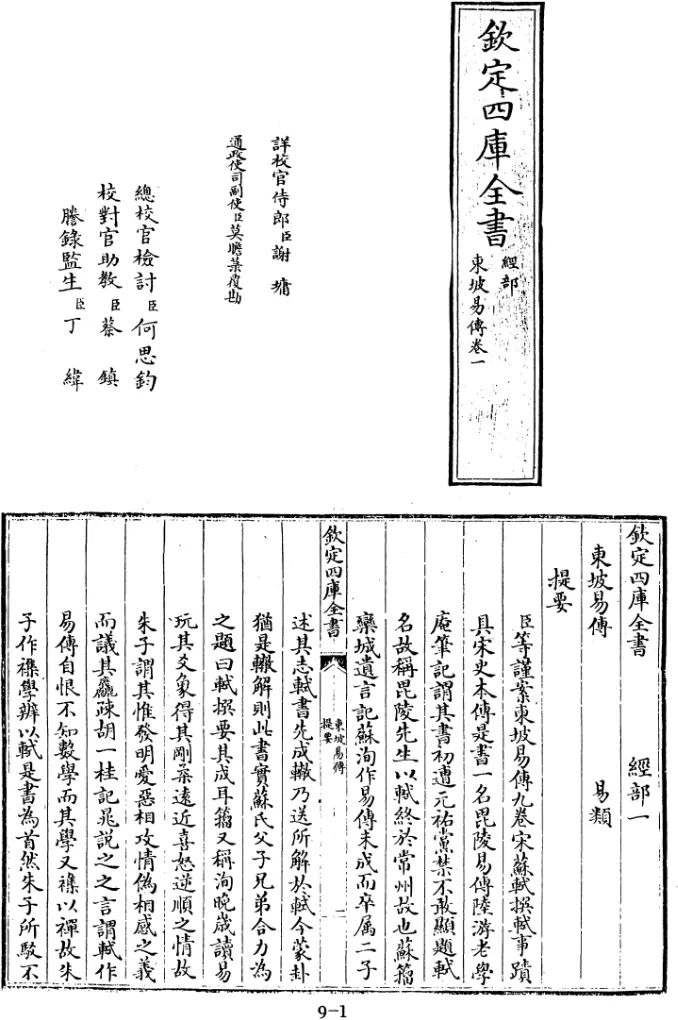 欽定四庫全書
經部
東坡易傳卷一
詳校官侍郎臣謝墉
通政使司副使臣莫瞻菉覆勘
總校官檢討臣何思鈞
校對官助教臣蔡鎮
謄錄監生臣丁緯
欽定四庫全書 經部一
東坡易傳 易類
提要
臣等謹案東坡易傳九卷宋蘇軾撰軾事蹟
具宋史本傳是書一名毘陵易傳陸游老學
庵筆記謂其書初遭元祐黨禁不敢顯題軾
名故稱毘陵先生以軾終於常州故也蘇籀
欒城遺言記蘇洵作易傳未成而卒屬二子
欽定四庫全書
東坡易傳
提要
一
述其志軾書先成轍乃送所解於軾今蒙卦
猶是轍解則此書實蘇氏父子兄弟合力為
之題曰軾撰要其成耳籀又稱洵晚歲讀易
玩其爻象得其剛柔遠近喜怒逆順之情故
朱子謂其惟發明愛惡相攻情偽相感之義
而議其麤疎胡一桂記晁説之之言謂軾作
易傳自恨不知數學而其學又襍以禪故朱
子作襍學辨以軾是書為首然朱子所駁不
9-1